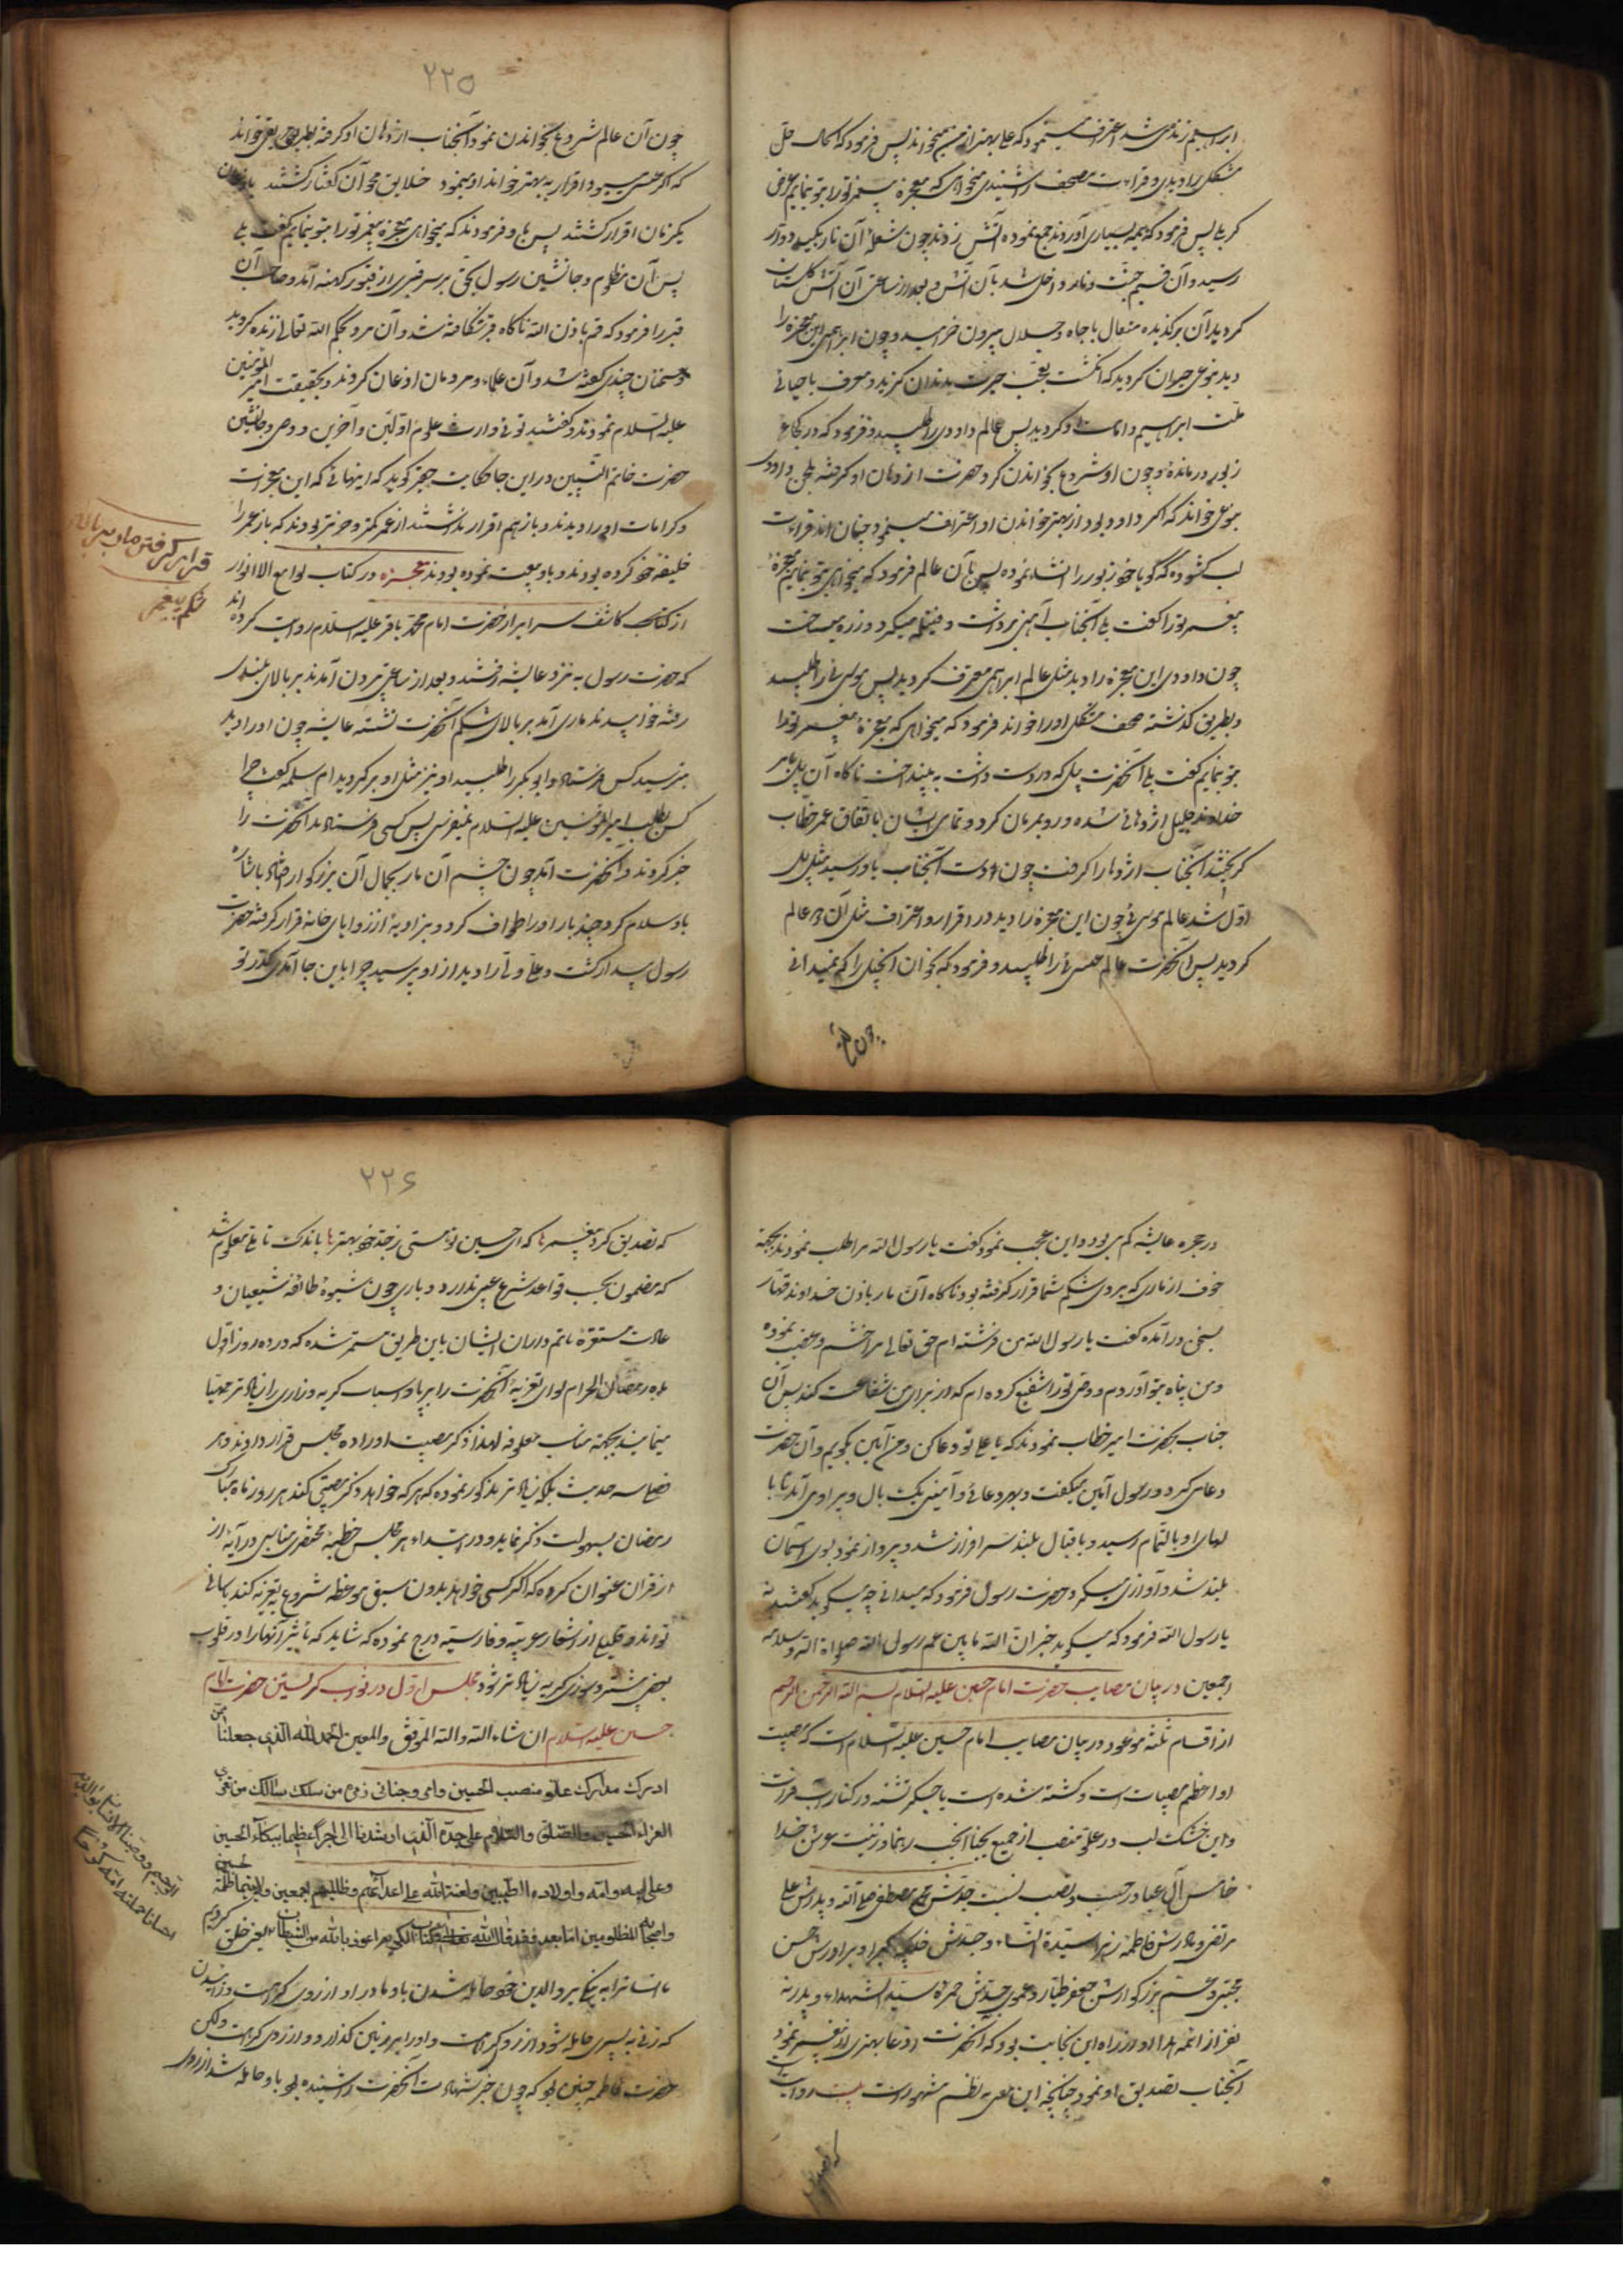 ابراهیم زنده می شد اعتراف مینمود که علی بهتر از من میخواند پس فرمود که الحال حل
مشکل را دیدی و قراءت صحف را شنیدی میخواهی که معجزه پیغمبر تو را بتو بنمایم عرض
کرد بلی پس فرمود که هیمه بسیاری آوردند جمع نموده آتش زدند چون شعله آن نار بکبد دوار
رسید و آن قسیم جنت و نار داخل شد بآن آتش و بعد از ساعتی آن آتش گلستان
گردید آن برگزیده متعال با جاه و جلال بیرون خرامید و چون ابراهیمی این معجزه را
دید بنوعی حیران گردید که انگشت تعجب حیرت بدندان گزید و معترف باحیای
ملت ابراهیم و امامت او گردید پس عالم داودی را طلبید و فرمود که در کجای
زبور درمانده و چون او شروع بخواندن کرد حضرت از دهان او گرفته بلحن داود
بنوعی خواند که اگر داود بود از بهتر خواندن او اعتراف مینمود چنان در قراءت
لب گشوده که گویا خود زبور را انشاء نموده پس بآن عالم فرمود که میخواهی بتو بنمایم معجزه
پیغمبر تو را گفت بلی آنجناب آهنی برداشت و فتیله میکرد و زره میساخت
چون داودی این معجزه را دید مثل عالم ابراهیمی معترف گردید پس موسائی را طلبید
و بطریق گذشته صحف مشکل او را خواند فرمود که میخواهی که معجزه پیغمبر تو را
بتو بنمایم گفت بلی آنحضرت بیل که در دست داشت به بینداخت ناگاه آن بیل بامر
خداوند جلیل اژدهائی شده و رو بمردمان کرد و تمامی ایشان باتفاق عمر خطاب
گریختند آنجناب اژدها را گرفت چون دست آنجناب باو رسید مثل بیل
اول شد عالم موسائی چون این معجزه را دید در اقرار و اعتراف مثل آن دو عالم
گردید پس آنحضرت عالم عیسائی را طلبید و فرمود که بخوان انجیل را که نمیدانی
چون آن
۲۲۵
چون آن عالم شروع بخواندن نمود آنجناب از دهان او گرفته بطریق خواند
که اگر عیسی میبود اقرار به بهتر خواندن او مینمود خلایق محو آن گفتار گشتند
یکزبان اقرار گشتند پس باو فرمودند که میخواهی معجزه پیغمبر تو را بتو بنمایم گفت بلی
پس آن مظلوم و جانشین رسول بحق بر سر قبری از قبور کهنه آمد و صاحب آن
قبر را فرمود که قم باذن الله ناگاه قبر شکافته شد و آن مرده بحکم الله تعالی زنده گردید
و سخنان چندی گفته شد و آن علماء و مردمان اذعان کردند بحقیقت امیر المؤمنین
علیه السلام نمودند و گفتند توئی وارث علوم اولین و آخرین و وصی و جانشین
حضرت خاتم النبیین در این جا حکایت حقیر گوید که اینهائی که این معجزات
و کرامات او را دیدند و باز هم اقرار نداشتند از عمر کمتر و خرتر بودند که باز عمر را
خلیفه خود کرده بودند و باو بیعت نموده بودند معجزه در کتاب لوامع الانوار
از کتاب کاشف سرایر از حضرت امام محمد باقر علیه السلام روایت کرده اند
که حضرت رسول به نزد عایشه رفتند و بعد از ساعتی بیرون آمدند بر بالای بلندی
رفته خوابیدند ماری آمد بر بالای شکم آنحضرت نشسته عایشه چون او را دید
بترسید کس فرستاد و ابوبکر را طلبید او نیز مثل او برگردید ام سلمه گفت چرا
کس بطلب امیر المؤمنین علیه السلام نمیفرستی پس کسی فرستادند آنحضرت را
خبر کردند آنحضرت آمد چون چشم آن مار بجمال آن بزرگوار افتاد باشاره
باو سلام کرد و چند بار او را طواف کرد و بزاویه از زوایای خانه قرار گرفته حضرت
رسول بیدار گشت و علی ولی را دید از او پرسید چرا باین جا آمدی تو
قرار گرفتن مار بر بالای
شکم پیغمبر
در حجره عایشه کم می بودی و این عجب نمود گفت یا رسول الله مرا طلب نمودند بجهة
خوف از ماری که بروی شکم شما قرار گرفته بود ناگاه آن مار باذن خداوند قهار
بسخن در آمده گفت یا رسول الله من فرشته ام حق تعالی مرا خشم و غضب نموده
و من پناه بتو آوردم و وصی تو را شفیع کرده ام که از برای من شفاعت کند پس آن
جناب بحضرت امیر خطاب نمودند که یا علی تو دعا کن و من آمین بگویم و آن حضرت
دعا میکرد و رسول آمین میگفت و بهر دعائی و آمینی یک بال و پر او می آمد تا با
لهای او بالتمام رسید و باقبال بلند سرافراز شد و پرواز نمود بسوی آسمان
بلند شد و آوازی میکرد حضرت رسول فرمود که میدانی چه میگوید گفتند نه
یا رسول الله فرمود که میگوید
اجمعین در بیان مصایب حضرت امام حسین علیه السلام بسم الله الرحمن الرحیم
از اقسام ثلثه موعود در بیان مصایب امام حسین علیه السلام است که مصیبت
او اعظم مصیبات است و کشته شده است با جگر تشنه در کنار آب فرات
و این خشک لب در علو منصب از جمیع نجبا انجب رهنما و زینت عرش خدا
خامس آل عبا در حسب و نصب نسبت جدش محمد مصطفی صلی الله و پدرش علی
مرتضی و مادرش فاطمه زهرا سیدة النساء و جدتش خدیجه کبرا و برادرش حسن
مجتبی و عم بزرگوارش جعفر طیار و عموی جدش حمزه سید الشهداء و پدر نه
نفر از ائمه هدا او از راه این نجابت بود که آنحضرت ادعا بهتری از پیغمبر نمود
آنجناب تصدیق او نمود چنانچه این معنی به نظم مشهور است
که تصدیق
۲۲۶
که تصدیق کرد پیغمبرها که ای حسین تو هستی زجد خود بهترها باندک تأملی معلوم شد
که مضمون بحسب قواعد شرع عیبی ندارد و باری چون شیوه طائفه شیعیان و
عادت مستقره ماتم داران ایشان باین طریق مستمر شده که در ده روز اول
ماه رمضان الحرام لوای تعزیه آنحضرت را برپا و اسباب گریه و زاری را زیاده تر مهیا
مینمایند بجهة مناسب معلوفه لهذا ذکر مصیبت او را ده مجلس قرار دادند و در
حدیث بلکه زیاده تر مذکور نموده که هر که خواهد ذکر مصیبتی کند هر روز ماه مبارک
رمضان بسهولت ذکر نماید و در ابتداء هر مجلس خطبه مختصری مناسبی در آیه از
از قران عنوان کرده که اگر کسی خواهد بدون سبق موعظه شروع بتعزیه کند باسانی
تواند و قلیلی از اشعار عربیه و فارسیه درج نموده که شاید که تاثیر آنها را در قلوب
بعضی بیشتر و سوزش گریه زیاده تر شود مجلس اول در ثواب گریستن حضرت امام
حسین علیه السلام ان شاء الله و الله الموفق و المعین الحمد لله الذی جعلنا ممن
ادرک مدارک علو منصب الحسین
العزاء الحسین و الصلوة و السلام علی جده الذی ارشدنا الی اجرا عظیما ببکاء الحسین
وعلی ابیه و امه و اولاده الطیبین و لعنة الله علی اعدائهم و ظالمیهم اجمعین
واصحابه المظلومین اما بعد فقد قال الله اعوذ بالله من الشیطان یعنی خلق کردیم
ما انسانرا به نیکی بر والدین خود حامله شدن باو مادر او از روی کراهت و زائیدن
که زنی به پسری حامله شود از رو کراهت و او را بر زمین گذارد و از روی کراهت ولکن
حضرت فاطمه چنین بود که چون خبر شهادت آنحضرت را شنیده بود باو حامله شد از روی
الرحیم و وصینا الانسان بوالدیه
احسانا حملته امه کرها